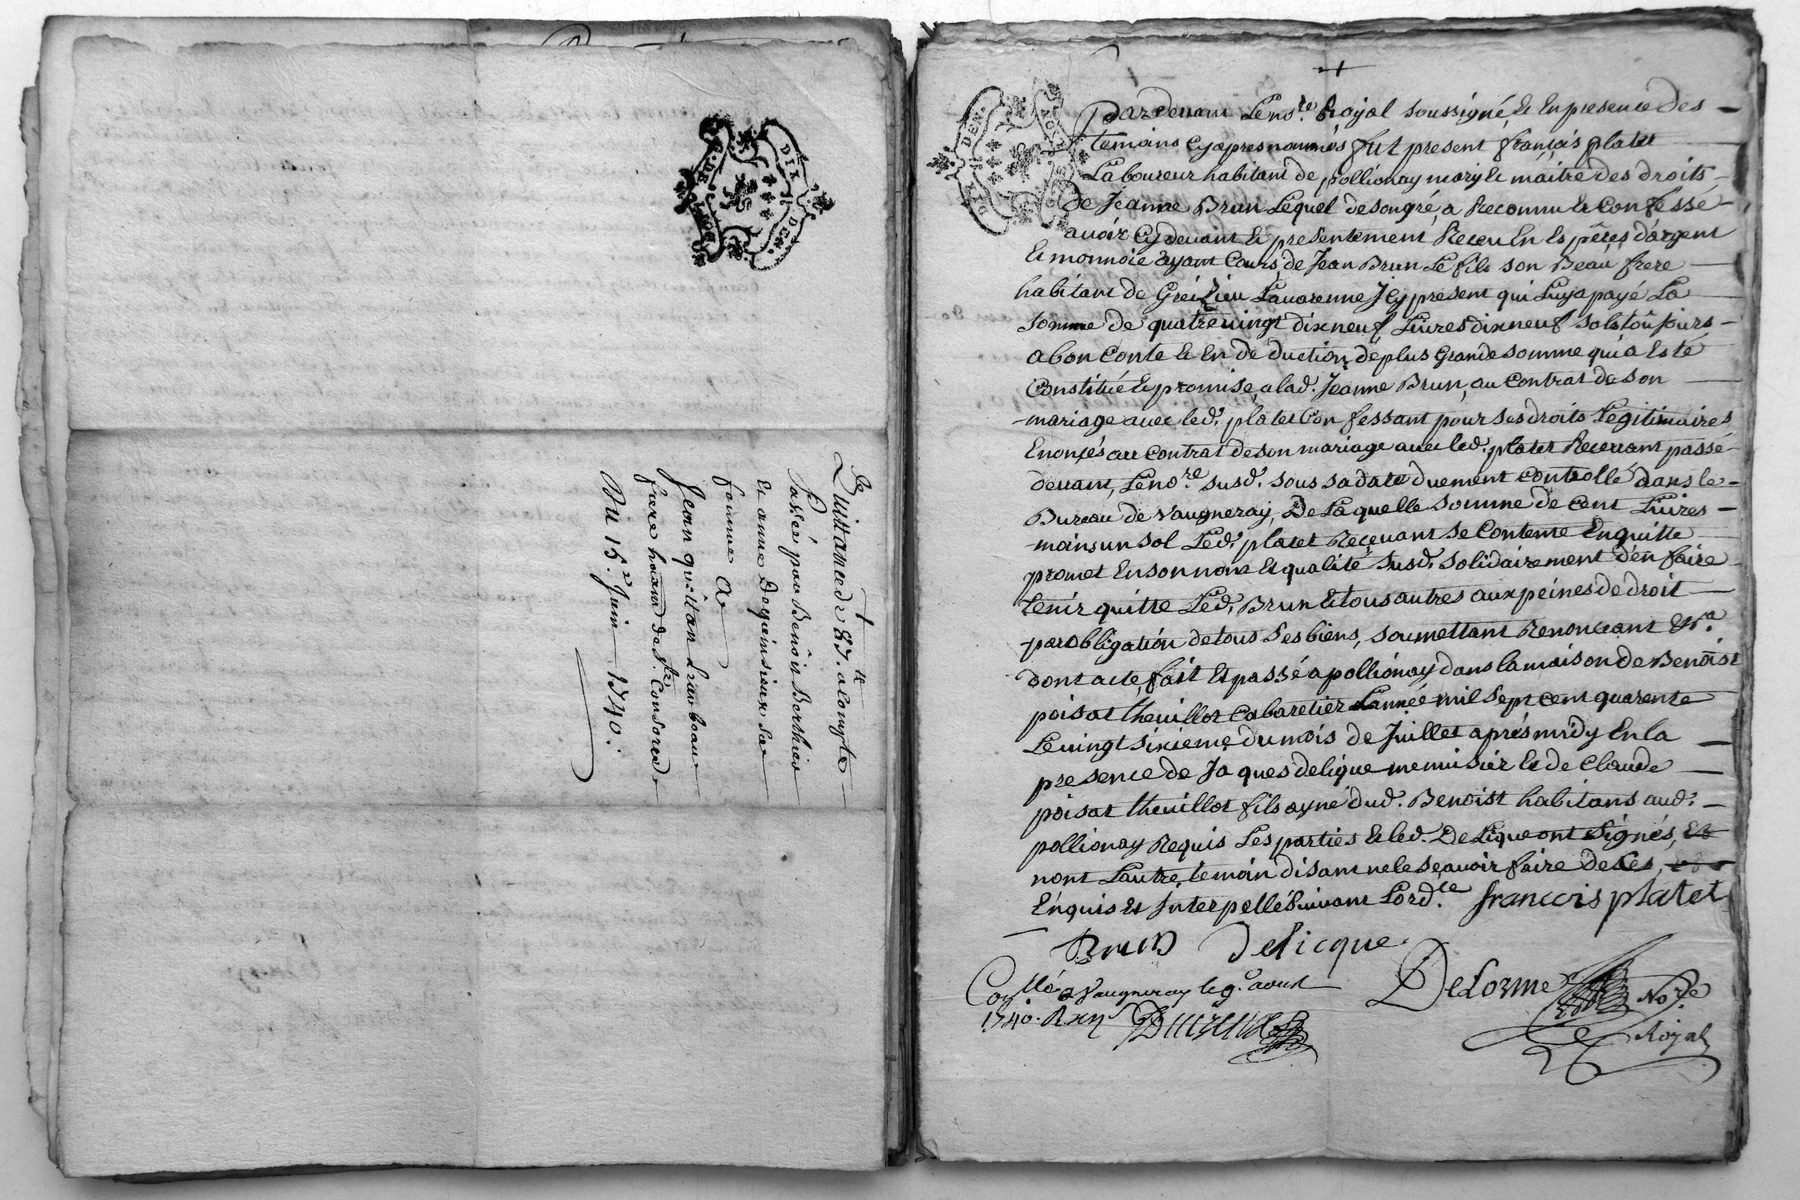 Quittance de 87.lt acompte
Passée par Benoist Berthier
et anne Deguinsieux sa
femme A
Jean quittan Leur beau
frere habitant de Ste. Consorce
Du 15.e Juin 1740.
DIL DEN.
G. DE LYON
Pardevant Le no.re Royal soussigné, et En presence des
temoins cy apres nommés fut present françois platet
Laboureur habitant de pollionay mary et maitre des droits
de Jeanne Brun Lequel de son gré, a Reconnu et Confessé
avoir cy devant et presentement Receu En Espéces d'argent
et monnoie ayant Cours, de Jean Brun Le fils son Beau frere
habitant de Greizieu Lavarenne Icy present qui Luy a payé La
somme de quatre vingt dix neuf Livres dix neuf sols toujours
a bon Conte et En deduction de plus Grande somme qui a Esté
Constituée et promise, a lad. Jeanne Brun, au Contrat de son
mariage avec led. platet Confessant pour ses droits Légitimaires
Enoncés au Contrat de son mariage avec led. platet Recevant passé
devant, Le no.re susd. sous sa date duement Controllé dans le
Bureau de Vaugneray, De Laquelle somme de Cent Livres
moins un sol Led. platet Recevant se Contente En quitte
promet En son nom et qualité susd. solidairement d'en faire
tenir quitte Led. Brun et tous autres aux peines de droit
par obligation de tous ses biens, soumettant Renonceant &r.a
dont acte, fait Et passé a pollionay dans la maison de Benoist
poisat theuillot Cabaretier L'année mil sept cent quarente
Le vingt sixieme du mois de Juillet aprés midy En la
presence de Jaques delique menuisier et de Claude
poisat theuillot fils ayné dud. Benoist habitans aud.
pollionay Requis Les parties et led. Delique ont signés,
nont Lautre temoin disant ne le sçavoir faire de Ces,
Enquis et Interpellé suivant Lord.ce francois platet
Brun Delicque
Delorme No.re
Royal
Con.llé a Vaugneray le 9.e aoust
1740.